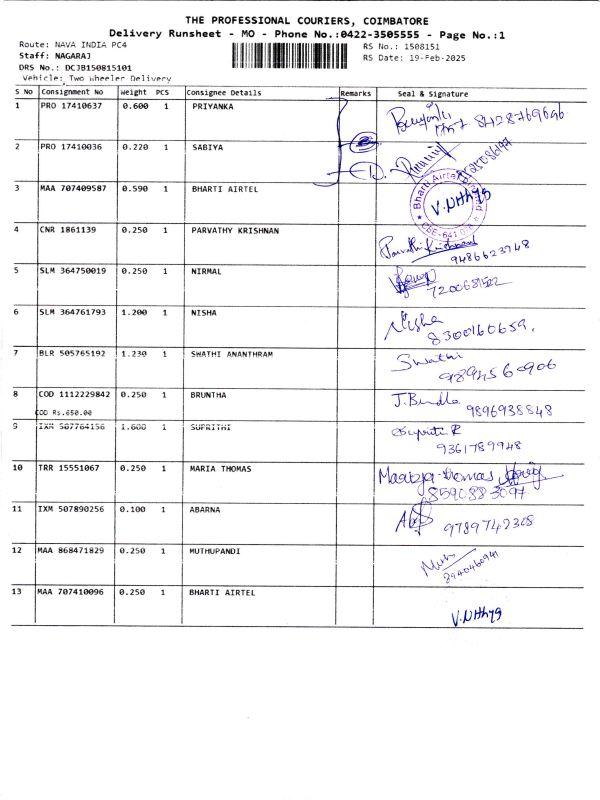 THE PROFESSIONAL COURIERS, COIMBATORE
Delivery Runsheet - MO - Phone No.:0422-3505555 - Page No.:1
Route: NAVA INDIA PC4 RS No.: 1508151
Staff: NAGARAJ RS Date: 19-Feb-2025
DRS No.: DCJB150815101
Vehicle: Two Wheeler Delivery
S No Consignment No Weight PCS Consignee Details Remarks Seal & Signature
1 PRO 17410637 0.600 1 PRIYANKA
8428769646
2 PRO 17410036 0.220 1 SABIYA
3 MAA 707409587 0.590 1 BHARTI AIRTEL
V.NHhya
4 CNR 1861139 0.250 1 PARVATHY KRISHNAN Parvathi Krishnan
9486623948
5 SLM 364750019 0.250 1 NIRMAL
6 SLM 364761793 1.200 1 NISHA Nisha
8300160659.
7 BLR 505765192 1.230 1 SWATHI ANANTHRAM Swathi
9894560906
8 COD 1112229842 0.250 1 BRUNTHA J.Bundha
COD Rs.650.00 9896938848
9 IXM 507764156 1.600 1 SUPRITHI Supriti R
9361789948
10 TRR 15551067 0.250 1 MARIA THOMAS Maria Thomas
8590883097
11 IXM 507890256 0.100 1 ABARNA
9789742308
12 MAA 868471829 0.250 1 MUTHUPANDI Muthu
8940460941
13 MAA 707410096 0.250 1 BHARTI AIRTEL
V.NHhya